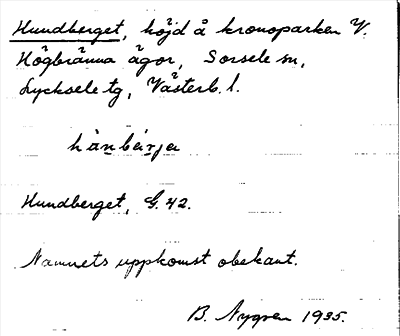 Hundberget, höjd å kronoparken V.
Högbränna ägor, Sorsele sn,
Lycksele tg, Västerb. l.
hànbæ̀rja
Hundberget, G. 42.
Namnets uppkomst obekant.
B. Nygren 1935.